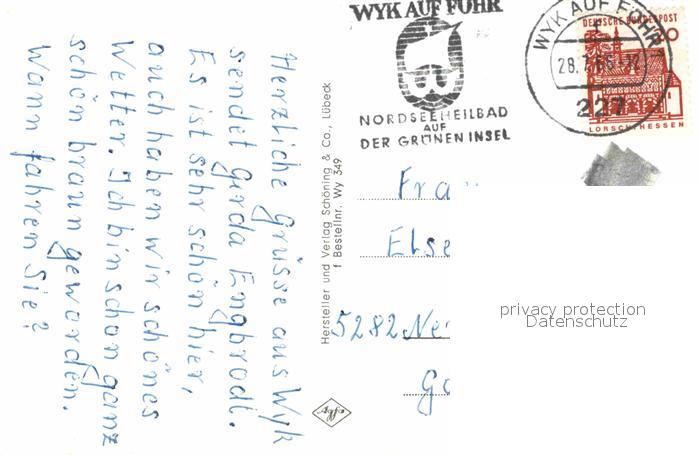 Herzliche Grüsse aus Wyk
sendet Gerda Engbrodt.
Es ist sehr schön hier,
auch haben wir schönes
Wetter. Ich bin schon ganz
schön braun geworden.
Wann fahren Sie?
Hersteller und Verlag Schöning & Co., Lübeck
f Bestellnr. Wy 349
Agfa
WYK AUF FÖHR
NORDSEEHEILBAD
AUF
DER GRÜNEN INSEL
WYK AUF FÖHR
28.7.66
227
DEUTSCHE BUNDESPOST
LORSCH/HESSEN
Fra
Else
5282 Ne
privacy protection
Datenschutz